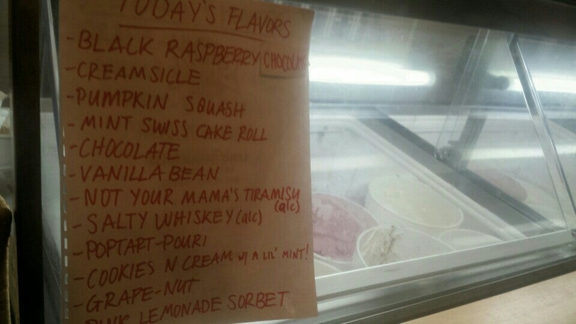 TODAY'S FLAVORS
- BLACK RASPBERRY CHOCOLATE
- CREAMSICLE
- PUMPKIN SQUASH
- MINT SWISS CAKE ROLL
- CHOCOLATE
- VANILLA BEAN
- NOT YOUR MAMA'S TIRAMISU (alc)
- SALTY WHISKEY (alc)
- POPTART-POURI
- COOKIES N CREAM w/ A LIL' MINT!
- GRAPE-NUT
- PINK LEMONADE SORBET